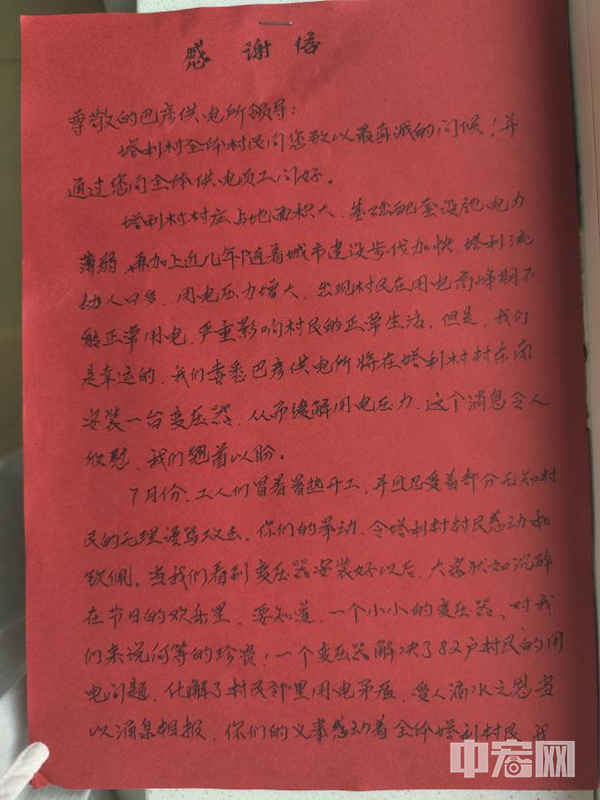 感谢信
尊敬的巴彦供电所领导：
塔利村全体村民向您致以最真诚的问候！并
通过您向全体供电员工问好。
塔利村村庄占地面积大、基础配套设施电力
薄弱，再加上近几年随着城市建设步伐加快，塔利流
动人口多，用电压力增大，出现村民在用电高峰期不
能正常用电，严重影响村民的正常生活。但是，我们
是幸运的，我们喜悉巴彦供电所将在塔利村村东南
安装一台变压器，从而缓解用电压力，这个消息令人
欣慰，我们翘首以盼。
7月份，工人们冒着暑热开工，并且忍受着部分无知村
民的无理谩骂攻击。你们的举动，令塔利村村民感动和
钦佩。当我们看到变压器安装好以后，大家犹如沉醉
在节日的欢乐里，要知道，一个小小的变压器，对我
们来说何等的珍贵！一个变压器解决了82户村民的用
电问题，化解了村民邻里用电矛盾，受人滴水之恩当
以涌泉相报，你们的义事感动着全体塔利村民，我
中宏网